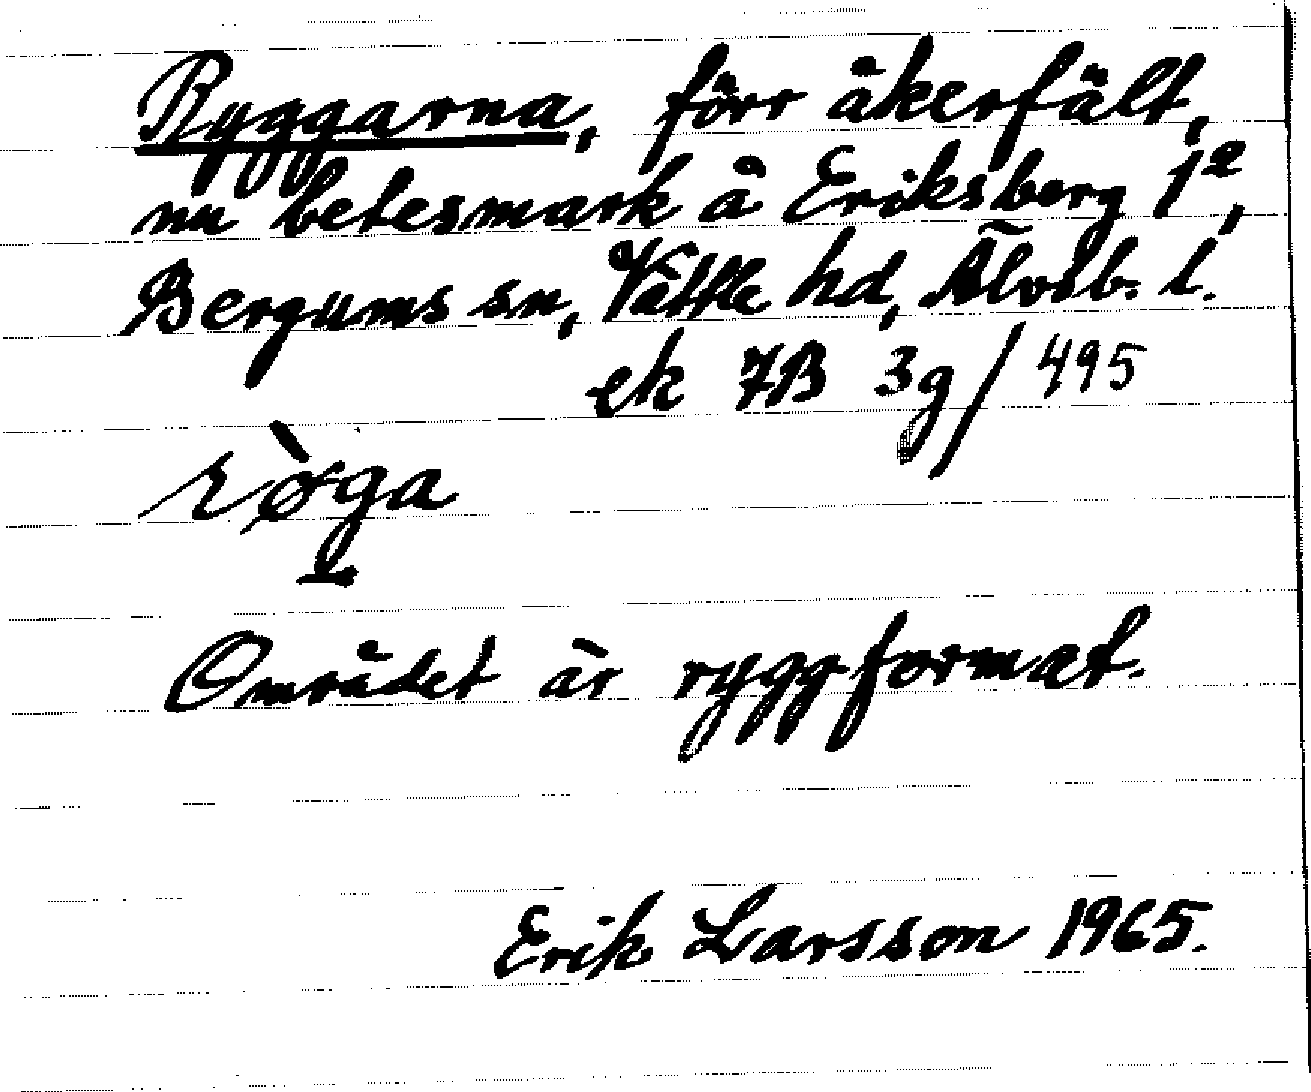 Ryggarna, förr åkerfält,
nu betesmark å Eriksberg 1²,
Bergums sn, Vättle hd, Älvsb. l.
ek 7B 3g/495
rø̀ga
Området är ryggformat.
Erik Larsson 1965.